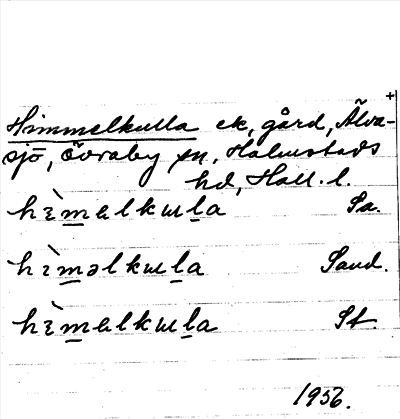 Himmelkulla ek, gård, Älva-
sjö, Övraby sn, Halmstads
hd, Hall. l.
hèmelkɯla Sa.
hìməlkɯla Sand.
hèmelkɯla St.
1956.